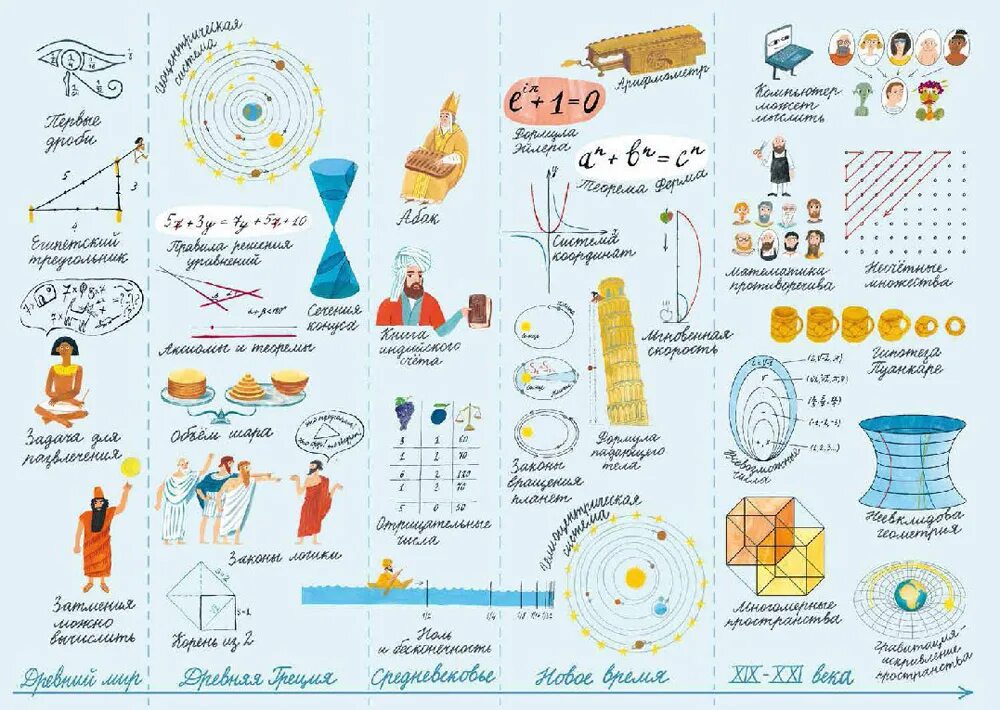 Первые
дроби
5
3
4
Египетский
треугольник
Задача для
развлечения
Затмения
можно
вычислить
Древний мир
Геоцентрическая
система
5x + 3y = 7y + 5x + 10
Правила решения
уравнений
Сечения
конуса
Аксиомы и теоремы
Объём шара
Законы логики
S=2
S=1
Корень из 2
Древняя Греция
Абак
Книга
индийского
счёта
Отрицательные
числа
1/2
1/4
1/8
Ноль
и бесконечность
Средневековье
Арифмометр
e^iπ + 1 = 0
Формула
Эйлера
aⁿ + bⁿ = cⁿ
Теорема Ферма
y
x
Система
координат
Мгновенная
скорость
Законы
вращения
планет
Формула
падающего
тела
Гелиоцентрическая
система
Новое время
Компьютер
может
мыслить
Математика
противоречива
Несчётные
множества
Гипотеза
Пуанкаре
Всевозможные
числа
Неевклидова
геометрия
Многомерные
пространства
Гравитация -
искривление
пространства
XIX-XXI века